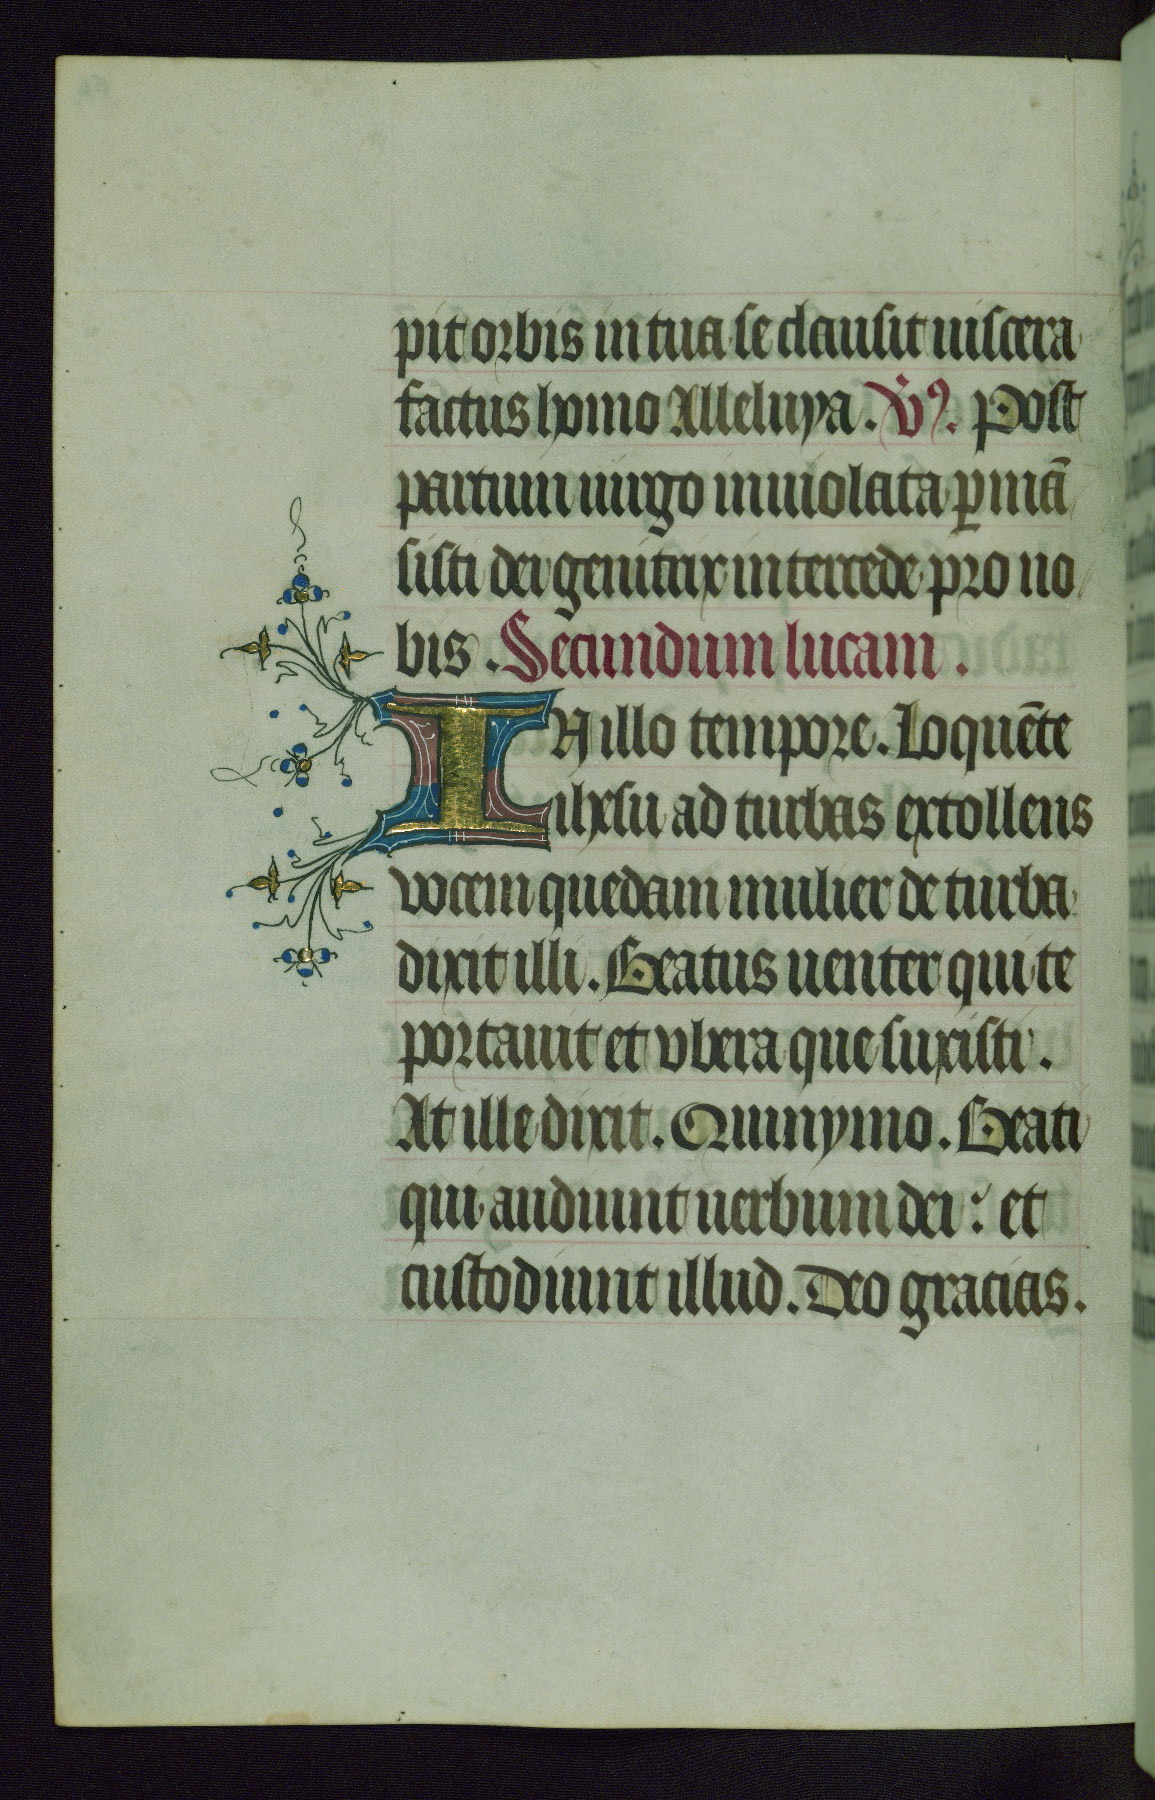 pit orbis in tua se clausit uiscera
factus homo Alleluya. V̾ꝰ. Post
partum uirgo inuiolata ꝑmā
sisti dei genitrix intercede pro no
bis. Secundum lucam.
IN illo tempore. Loquēte
ihesu ad turbas extollens
vocem quedam mulier de turba
dixit illi. Beatus uenter qui te
portauit et vbera que suxisti.
At ille dixit. Quinymo. Beati
qui audiunt uerbum dei : et
custodiunt illud. Deo gracias.